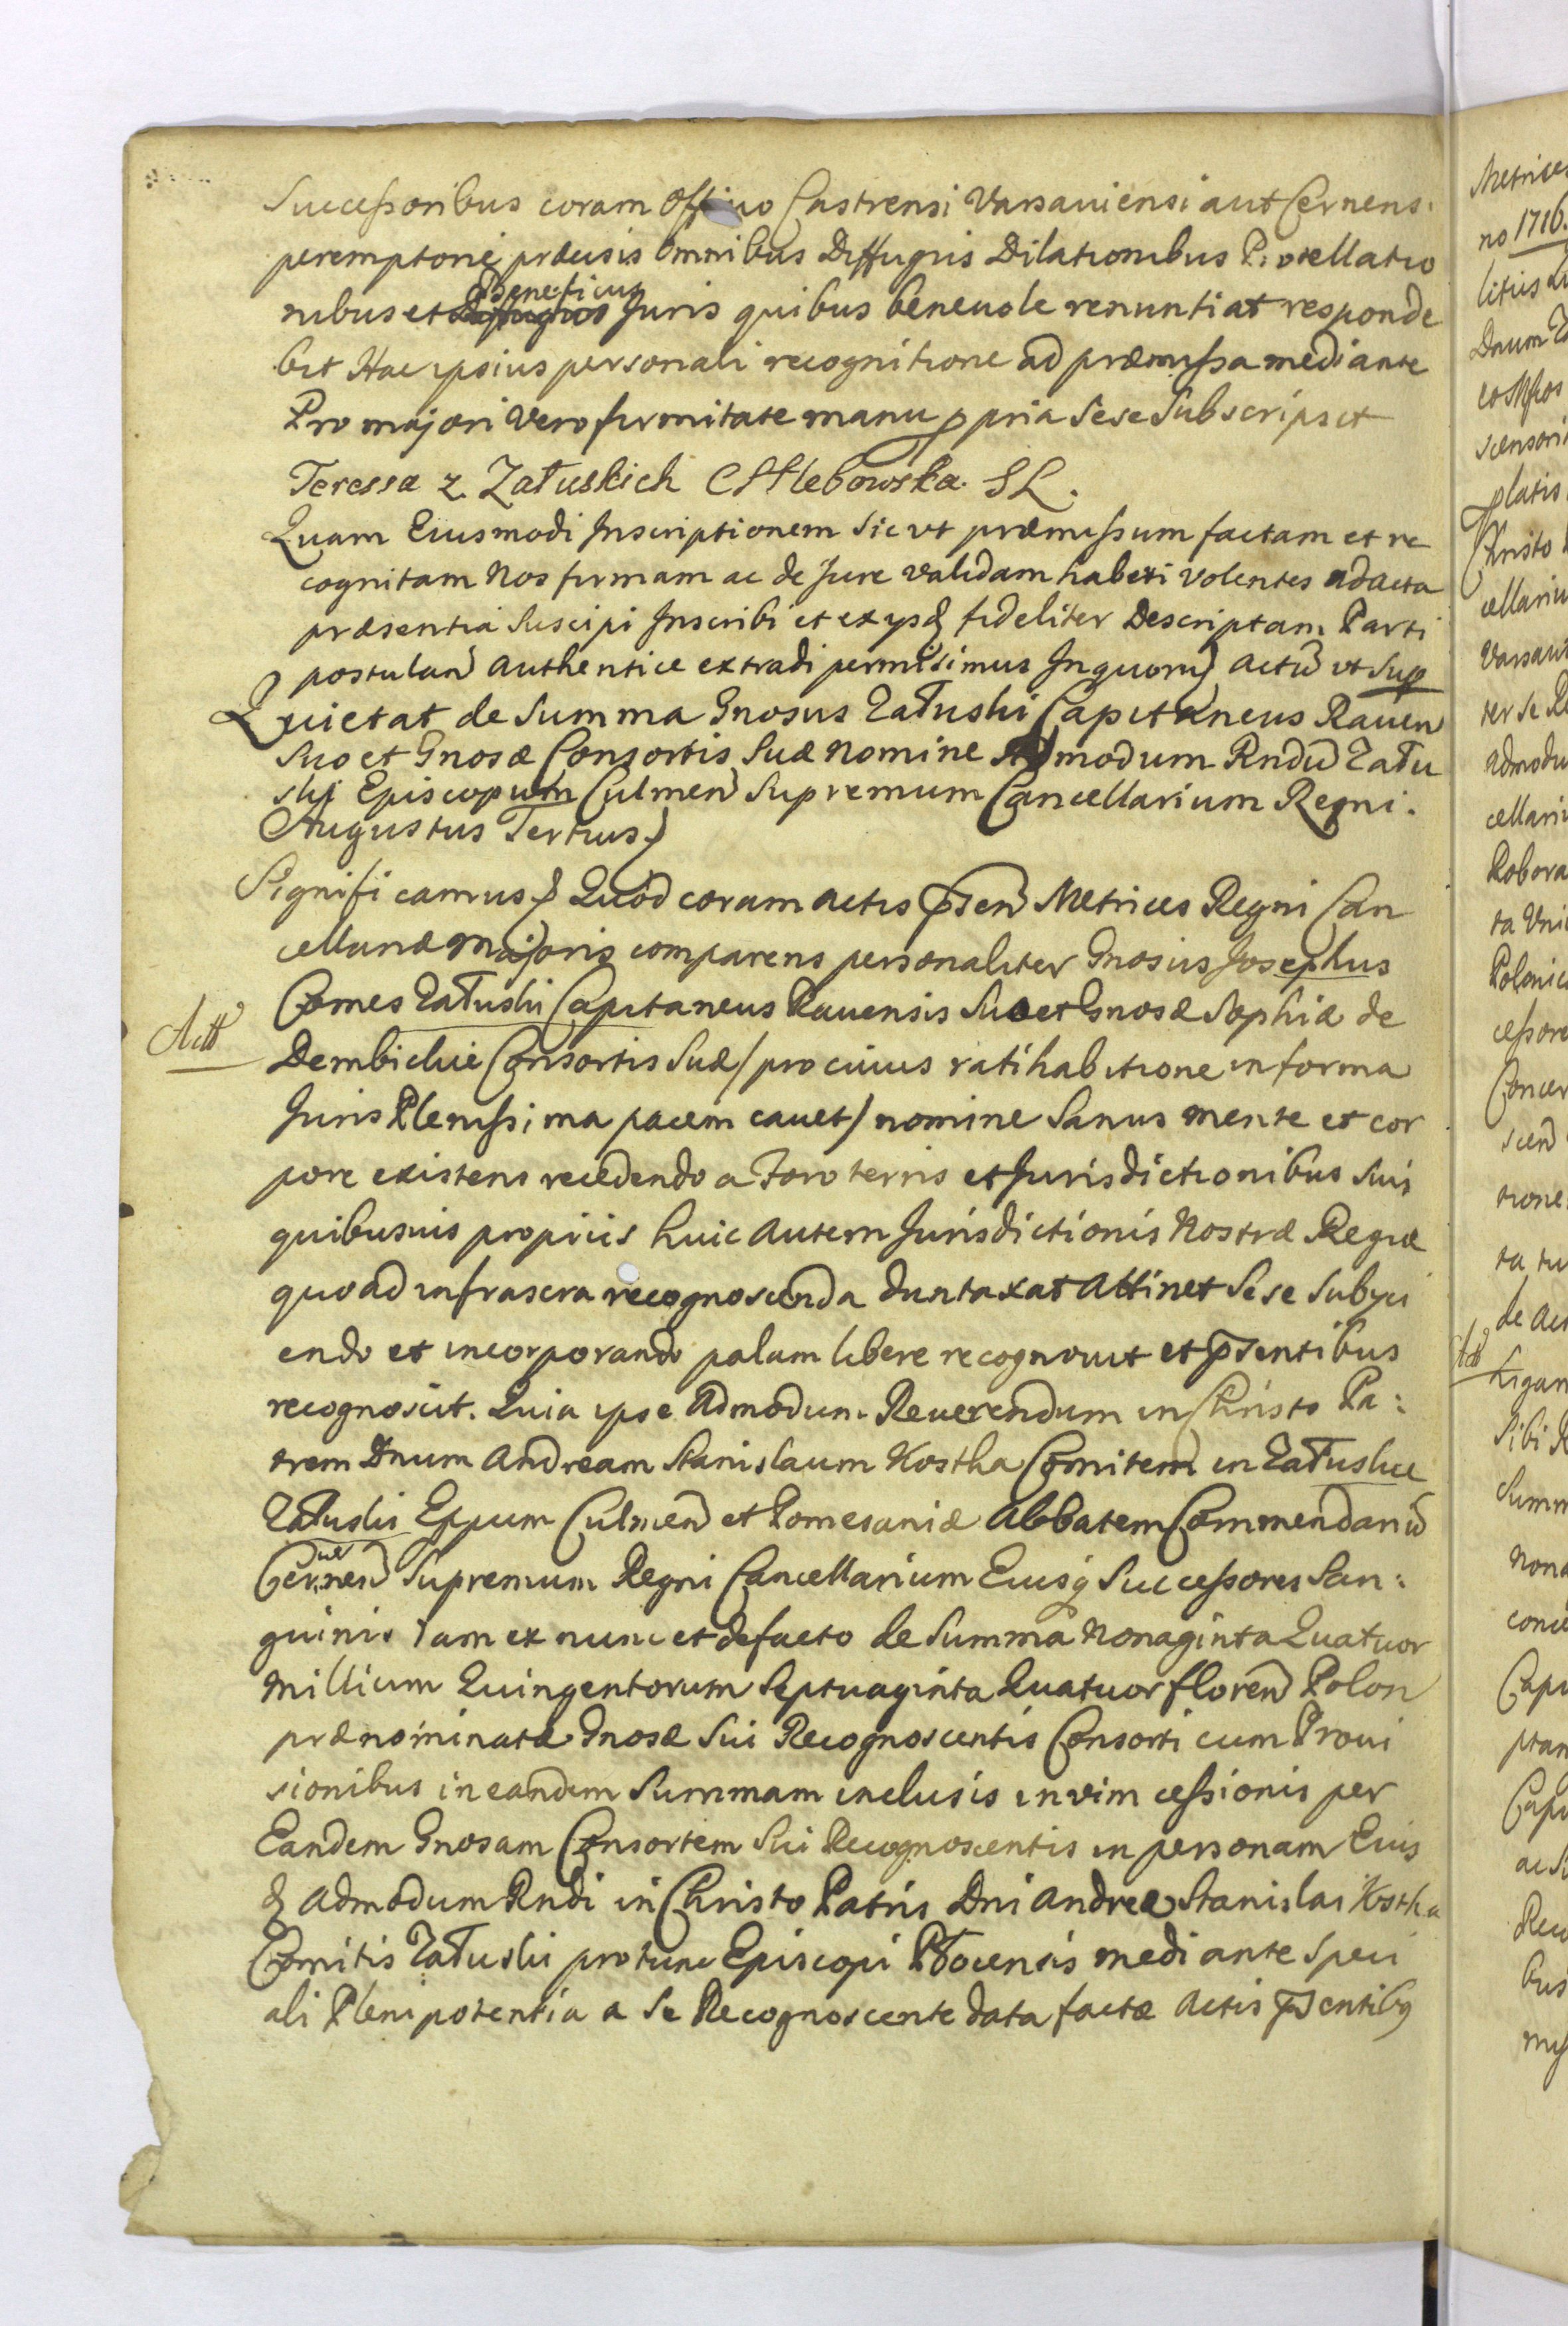 Successoribus coram Officio Castrensi Varsaviensi aut Cernens:
peremptorie præcisis omnibus Diffugiis Dilationibus Protellatio
nibus et Beneficiis Juris quibus benevole renuntiat responde
bit Hac ipsius personali recognitione ad præmissa mediante
Pro majori vero firmitate manu ppria Sese Subscripsit
Teressa z Załuskich CHlebowska. SL.
Quam Eiusmodi Inscriptionem Sic ut præmissum factam et re
cognitam Nos firmam ac de Jure validam haberi volentes ad acta
præsentia Suscipi Inscribi et ex ysd fideliter Descriptam Parti
postulan authentice extradi permisimus In quorum Actu ut Sup
Quietat de Summa Gnosus Załuski Capitaneus Raven
Suo et Gnosæ Consortis Suæ Nomine Admodum Rndu Zału
skj Episcopum Culmen Supremum Cancellarium Regni.
Augustus Tertius
Significamus Quod coram actis psen Metrices Regni Can
cellariæ Majoris comparens personaliter Gnosus Josephus
Comes Załuski Capitaneus Ravensis Suo et Gnosæ Sophiæ de
Actt
Dembickie Consortis Suæ / pro cuius ratihabitione in forma
Juris Plenissima pacem cavet / nomine Sanus mente et cor
pore existens recedendo a Foro terris et Jurisdictionibus Suis
quibusvis propriis huic autem Jurisdictionis Nostræ Regiæ
quo ad infrascra recognoscenda duntaxat attinet Sese Subyci
endo et incorporando palam libere recognovit et psentibus
recognoscit. Quia ipse admodum Reverendum in Christo Pa:
trem Dnum Andream Stanislaum Kostka Comitem in Załuskie
Załuski Eppum Culmen et Pomesaniæ Abbatem Commendariu
Cerven Supremum Regni Cancellarium Eiusq Successores San:
guinis Iam ex nunc et de facto de Summa Nonaginta Quatuor
Millium Quingentorum Septuaginta Quatuor floren Polon
prænominatæ Gnosæ Sui Recognoscentis Consorti cum Provi
sionibus in eandem Summam inclusis in vim cessionis per
Eandem Gnosam Consortem Sui Recognoscentis in personam Eius
d Admodum Rndi in Christo Patris Dni Andreæ Stanislai Kostka
Comitis Załuski pro tunc Episcopi Płocensis mediante Speci
ali Plenipotentia a Se Recognoscente data factæ Actis psentibq
Metrices
no 1716.
Dnum
scensori
platis
Christo
cellariu
Varsavi
ter se Re
admodu
cellariu
Robora
ta Vni
Polonic
cessore
Concer
scen
tione
de Act
Ligan
Sibi R
Summ
Nona
conce
Capi
Capi
Reco
bus